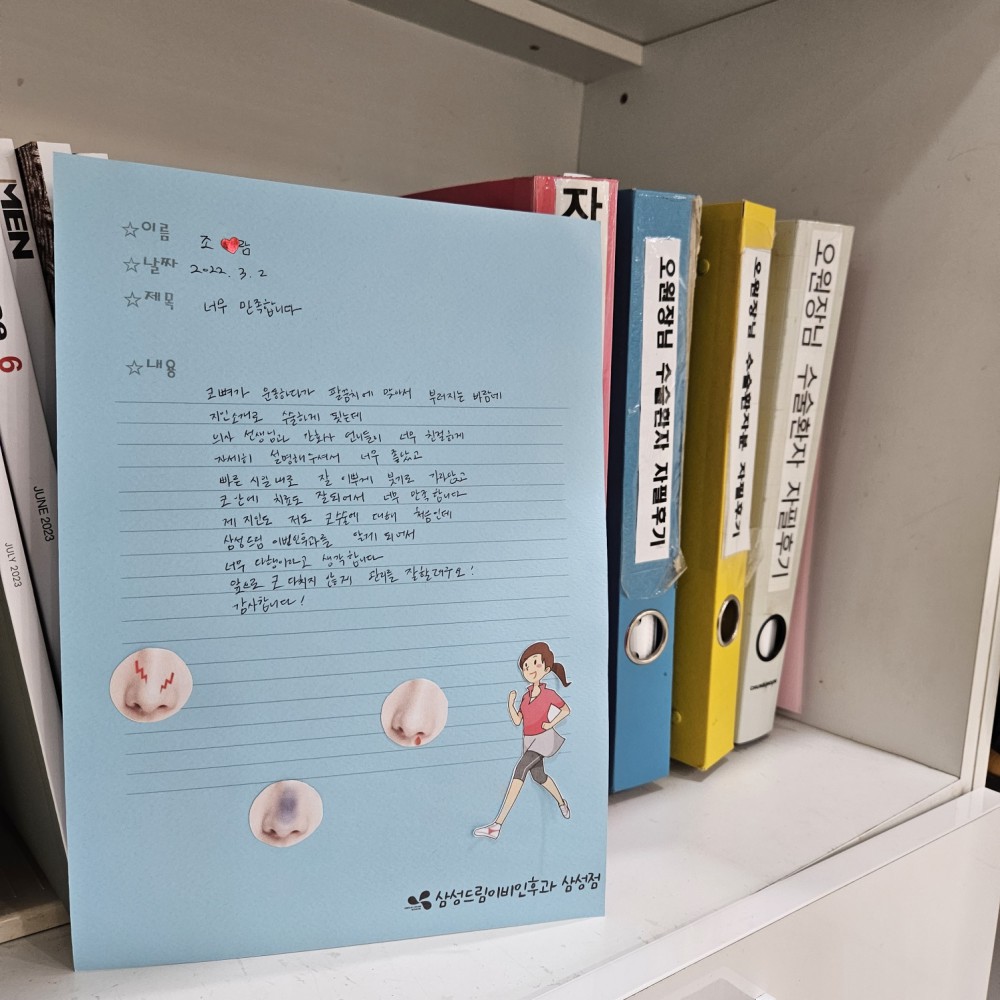 MEN
6
JUNE 2023
JULY 2023
☆이름 조 람
☆날짜 2022. 3. 2
☆제목 너무 만족합니다
☆내용
코뼈가 운동하다가 팔꿈치에 맞아서 부러지는 바람에
지인소개로 수술하게 됫는데
의사 선생님과 간호사 언니들이 너무 친절하게
자세히 설명해주셔서 너무 좋았고
빠른 시일내로 잘 이쁘게 붓기도 가라앉고
코 안에 치료도 잘되어서 너무 만족합니다
제 지인도 저도 코수술에 대해 처음인데
삼성드림 이비인후과를 알게 되어서
너무 다행이라고 생각합니다
앞으로 코 다치지 않게 관리를 잘할려구요!
감사합니다!
삼성드림이비인후과 삼성점
자
오원장님 수술환자 자필후기
오원장님 수술환자분 자필후기
오원장님 수술환자 자필후기